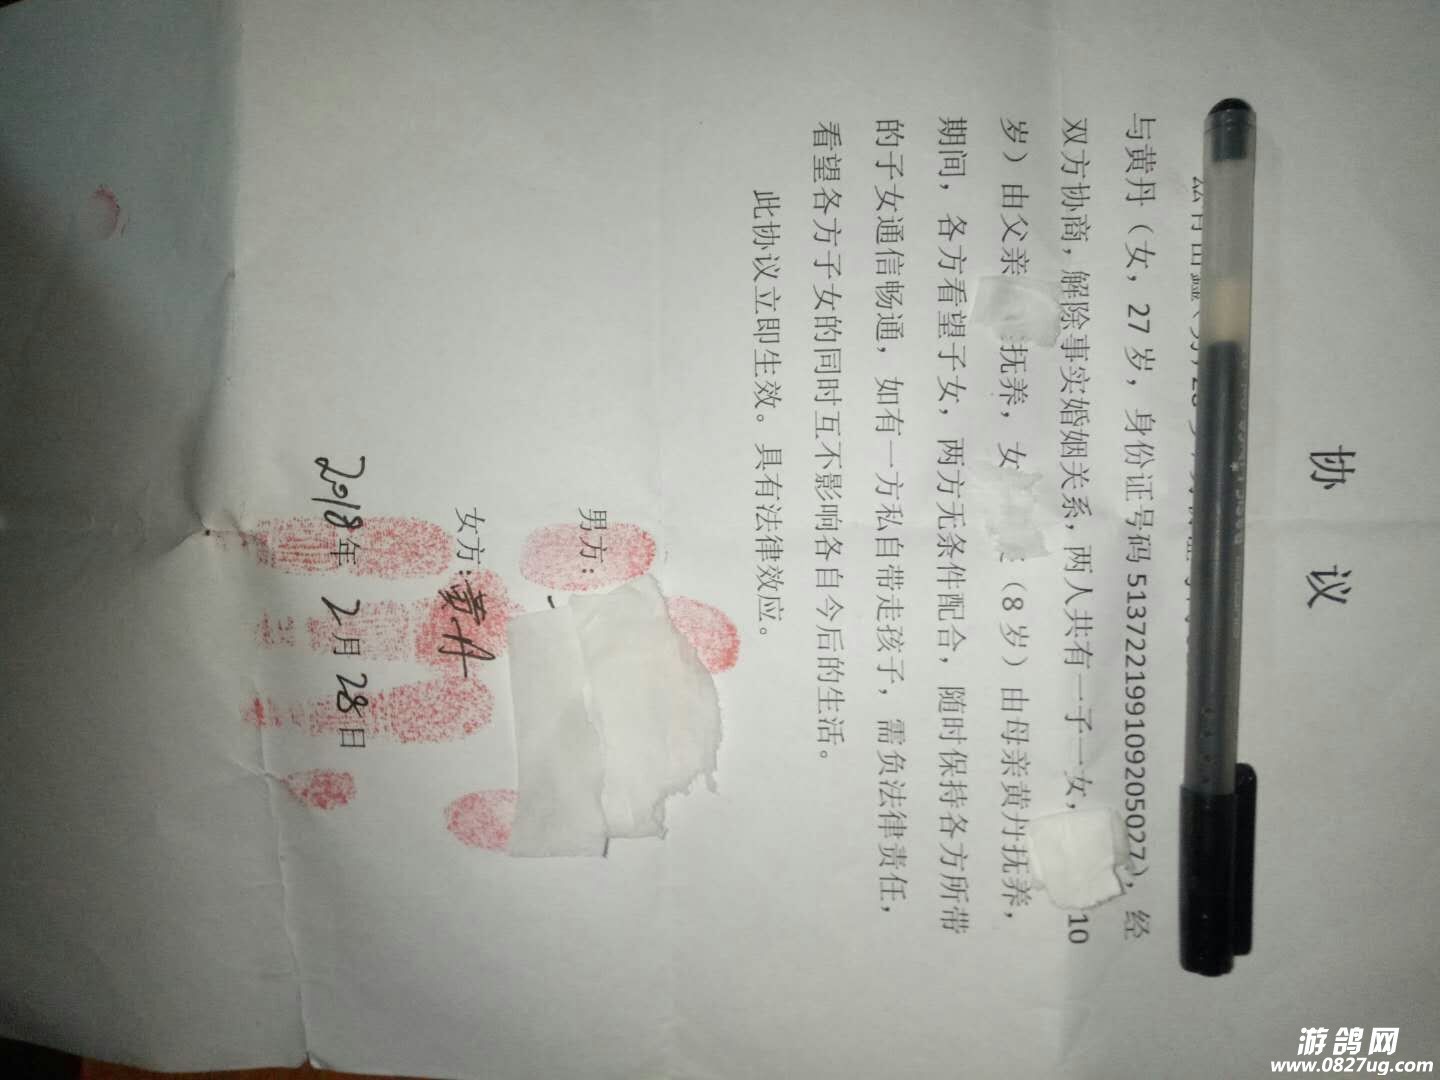 协 议
与黄丹（女，27 岁，身份证号码 513722199109205027），经
双方协商，解除事实婚姻关系，两人共有一子一女， 10
岁）由父亲 抚养，女 （8 岁）由母亲黄丹抚养，
期间，各方看望子女，两方无条件配合，随时保持各方所带
的子女通信畅通，如有一方私自带走孩子，需负法律责任，
看望各方子女的同时互不影响各自今后的生活。
此协议立即生效。具有法律效应。
男方：
女方：黄丹
2018年 2月 28日
游鸽网
www.0827ug.com